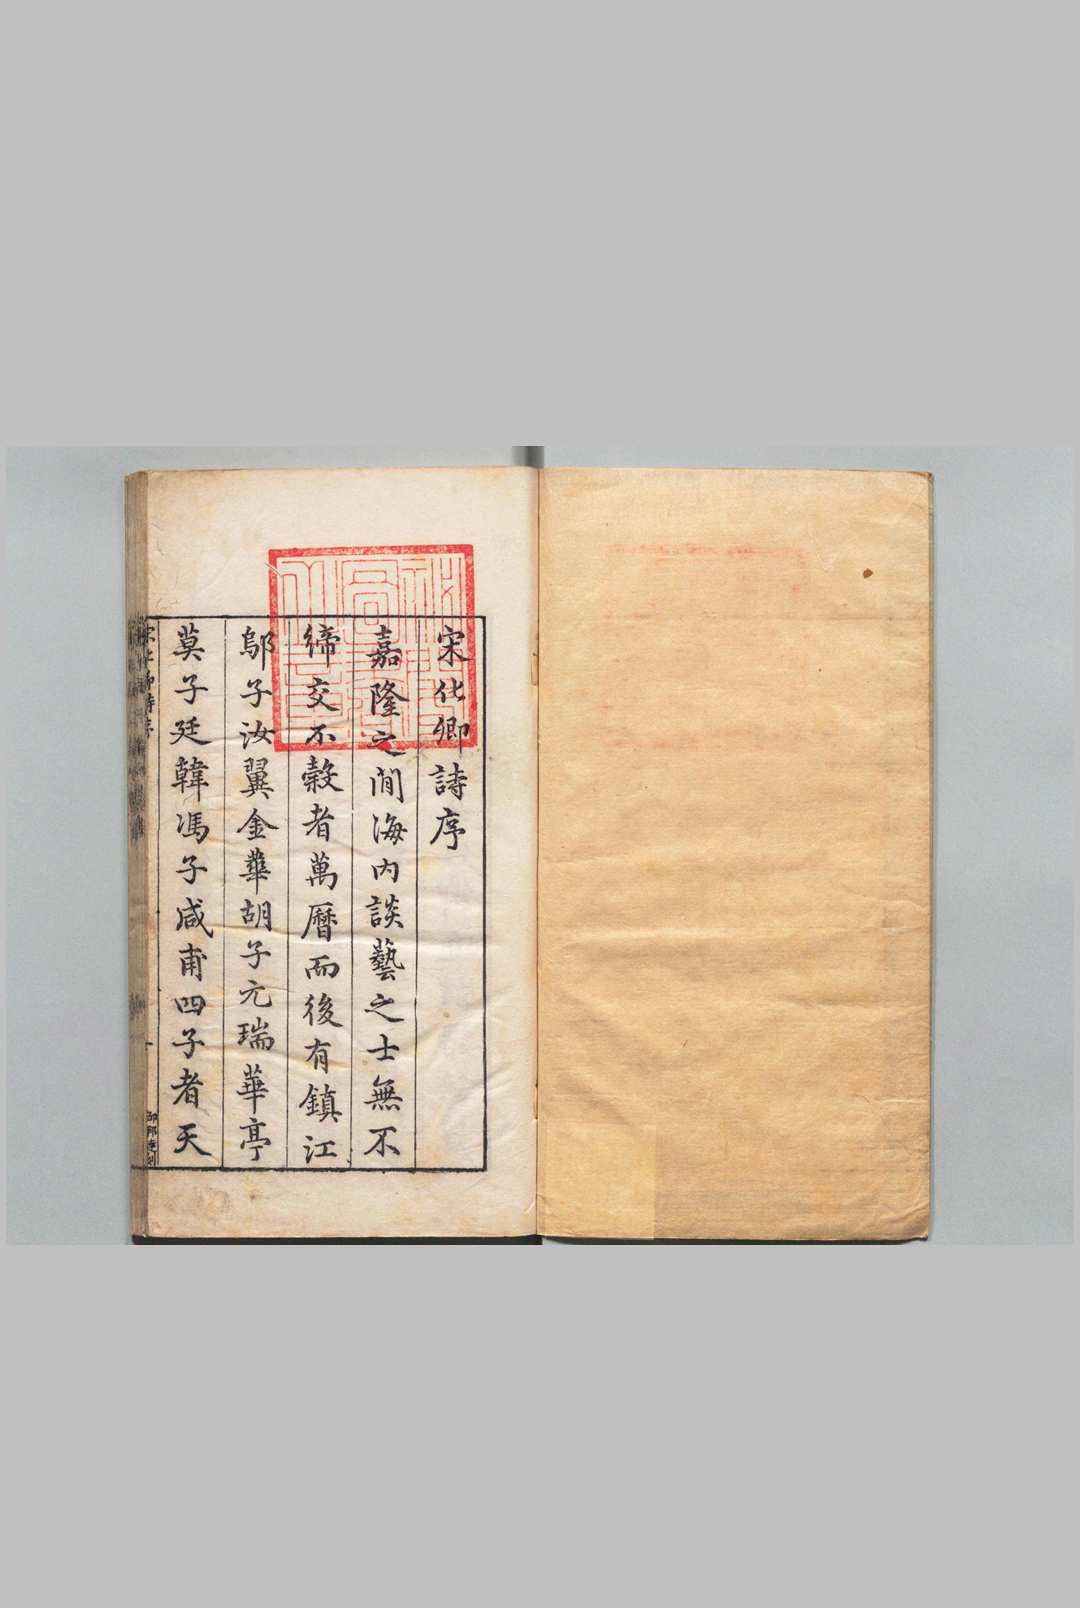 宋化卿詩序
嘉隆之間海內談藝之士無不
締交不穀者萬曆而後有鎮江
鄔子汝翼金華胡子元瑞華亭
莫子廷韓馮子咸甫四子者天